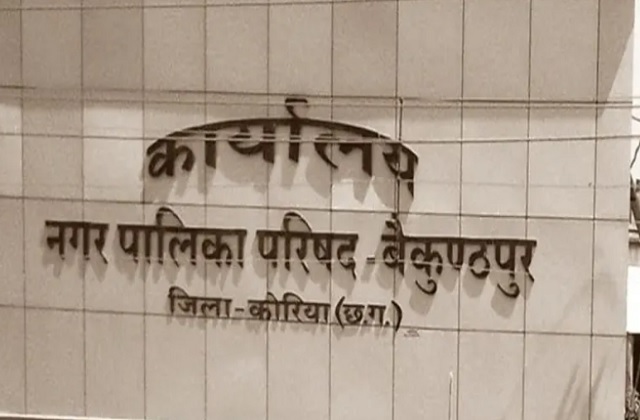 कार्यालय
नगर पालिका परिषद - बैकुण्ठपुर
जिला - कोरिया (छ.ग.)